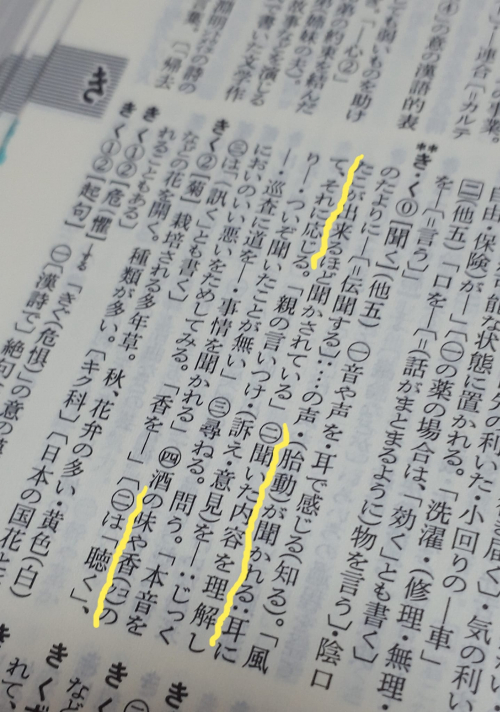 ・気の利い
の利いた・小回りの―車」
な状態に置かれる。「洗濯・(修理・無理・
自由・保険)が―」〔㊀の薬の場合は、「効く」とも書く〕
㊂(他五)「口を―〔=(話がまとまるように)物を言う〕・陰口
を―〔=言う〕」
**き・く⓪【聞く】(他五) ㊀音や声を耳で感じる(知る)。「風
のたよりに―〔=伝聞する〕:…の声・(胎動)が聞かれる・耳に
たこが出来るほど聞かされている」㊁聞いた内容を理解し
て、それに応じる。「親の言いつけ(訴え・意見)を―:じっく
り―・ついぞ聞いたことが無い」㊂尋ねる。問う。「本音を
―・巡査に道を―・事情を聞かれる」㊃酒の味や香(カ)の
においのいい悪いをためしてみる。「香を―」〔㊀は「聴く」、
㊂は「訊く」とも書く〕
きく②【菊】栽培される多年草。秋、花弁の多い・黄色(白)
などの花を開く。種類が多い。〔キク科〕〔日本の国花と
れることもある〕
きく①②【危懼】―する「きぐ(危惧)」の意の
きく①②【起句】㊀〔漢詩で〕絶句
―連合〔=カルテ
④」の意の漢語的表
も弱いものを助け
「―心②」
弟の約束を結んだ
弟姉妹の夫〕。
故事などを演じる
書いた文学作
の詩の
言葉。「「帰去
き